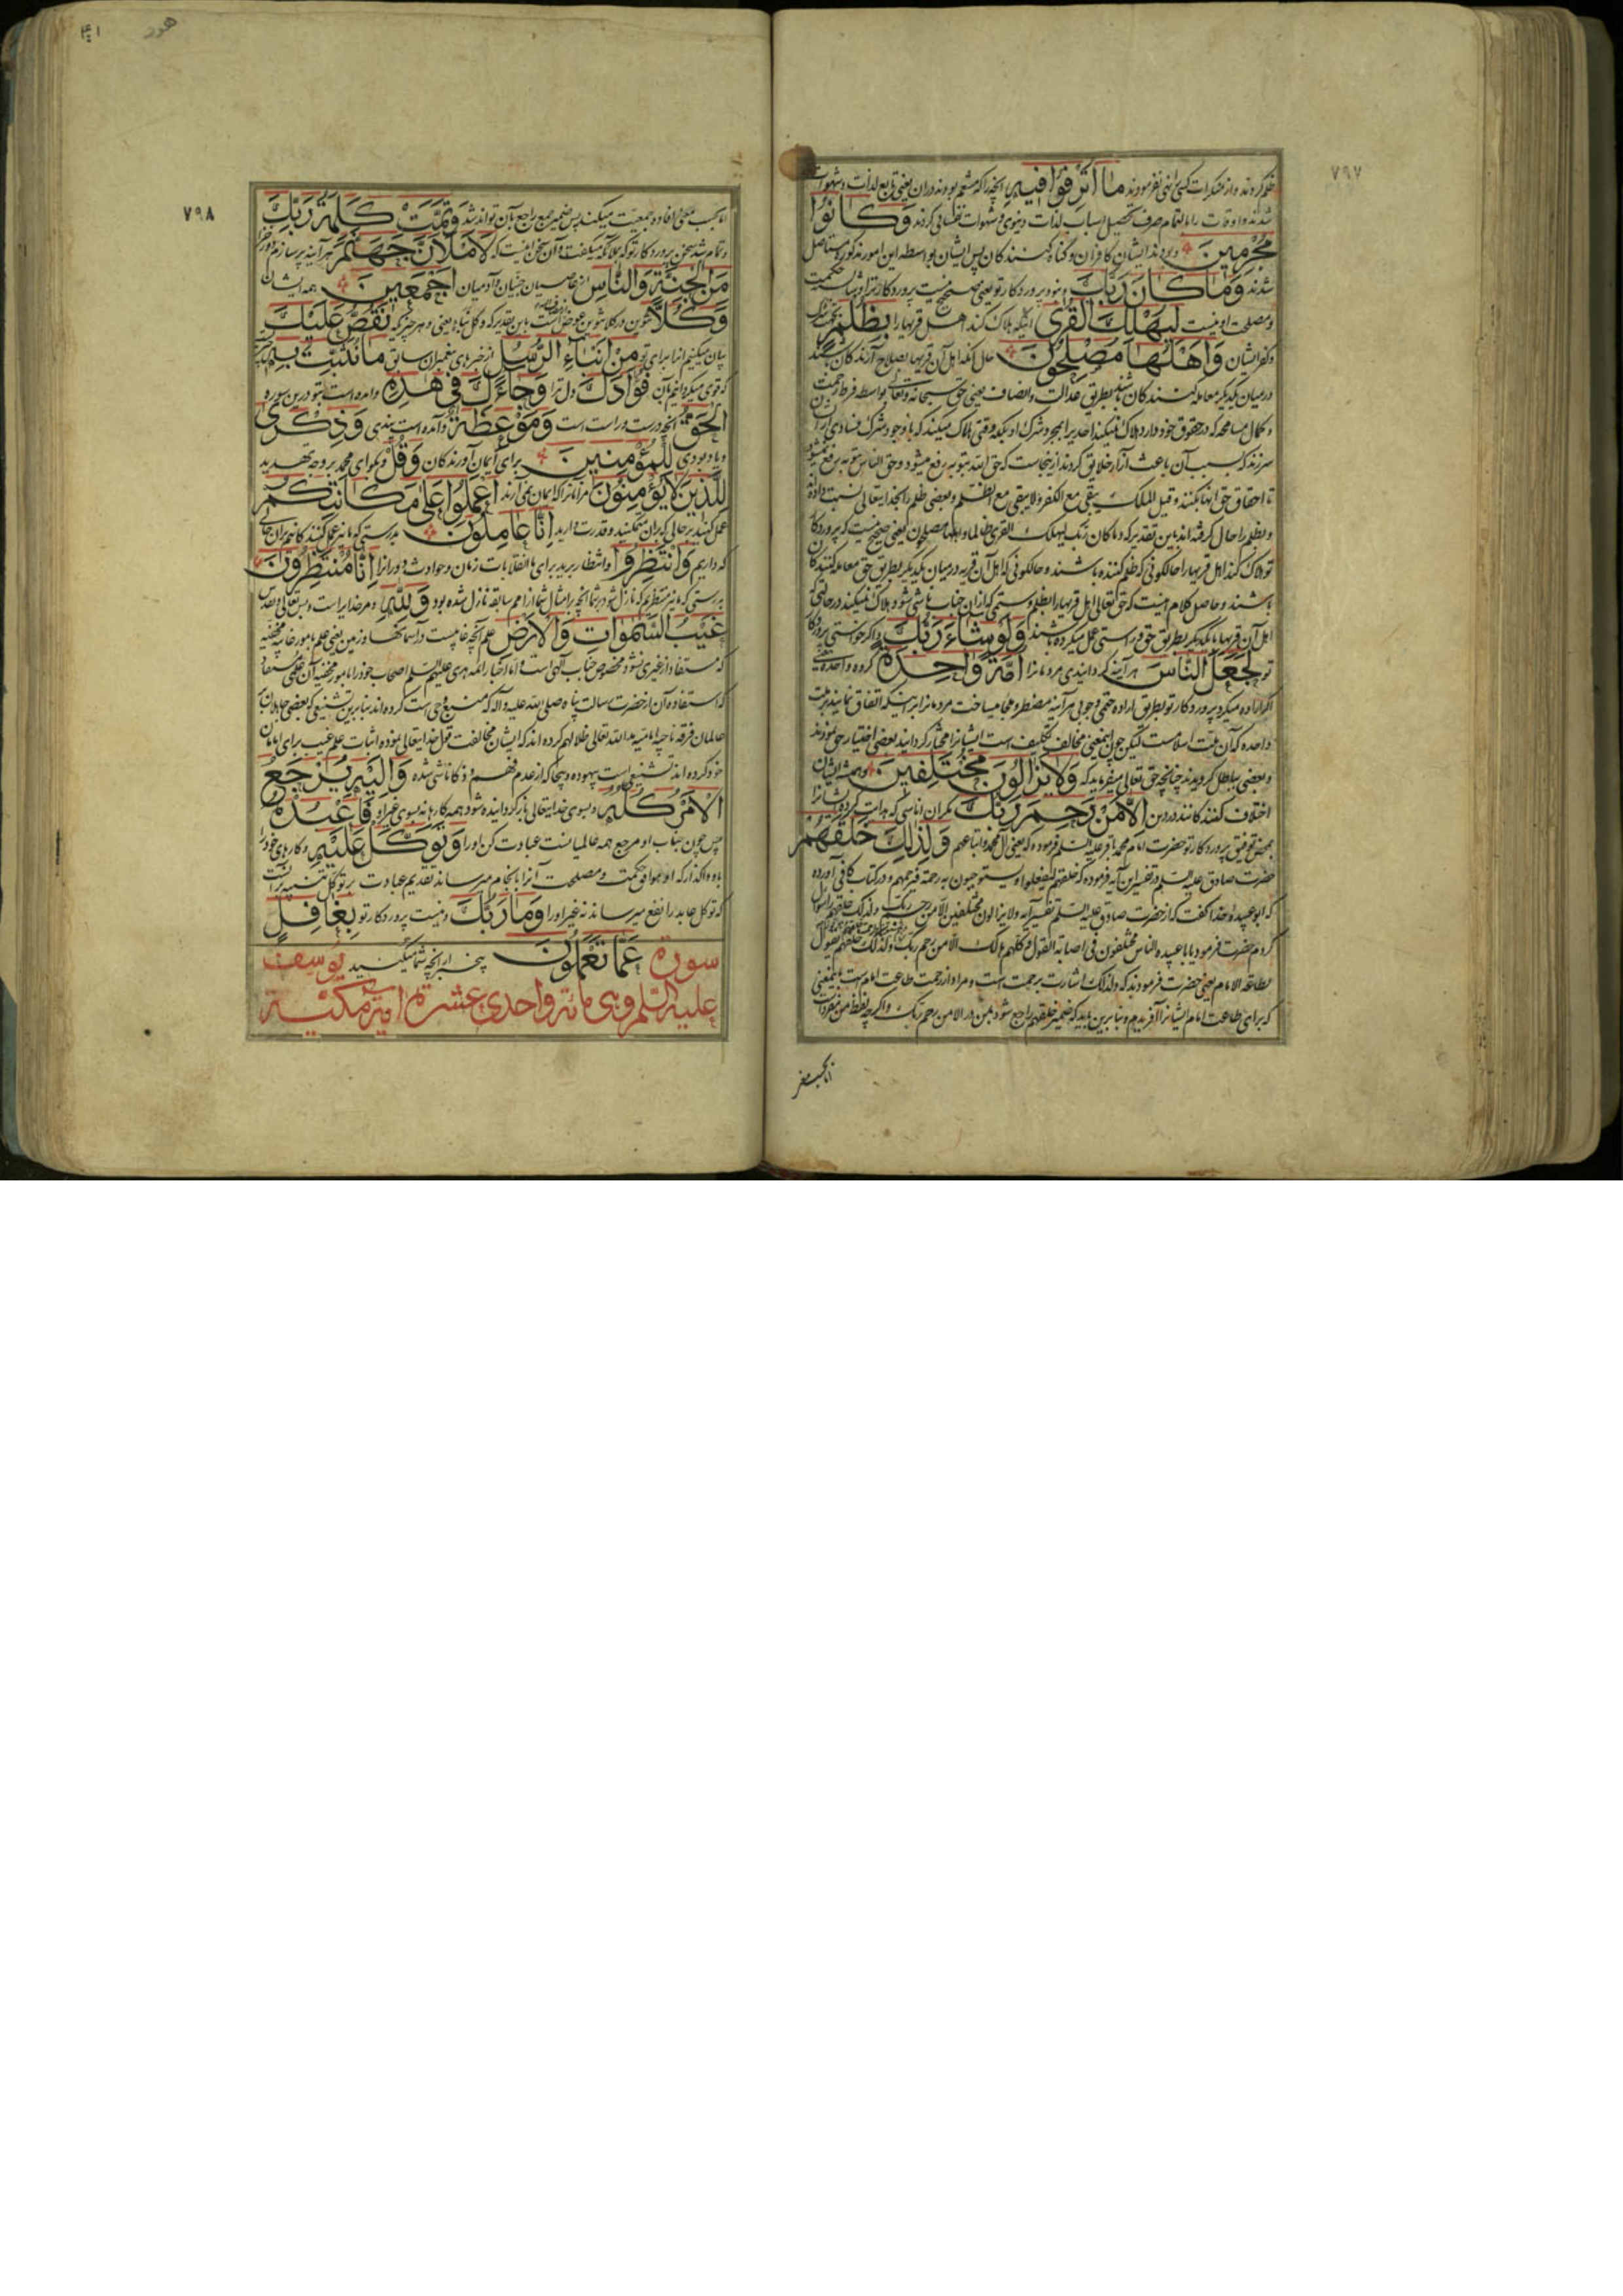 ۷۹۷
ما اترفوا فیه آنچیزرا که متنعم بودند در آن یعنی تابع لذات و شهوات
شدند و اوقات را بالتمام صرف تحصیل اسباب لذات دنیوی و شهوات نفسانی کردند وَكَانُوا
مُجْرِمِينَ و بودند ایشان کافران و گناه کنندگان پس ایشان بواسطه این امور مذکوره مستاصل
شدند وَمَا كَانَ رَبُّكَ و نبود پروردگار تو یعنی صحیح نیست پروردگار ترا و
و مصلحت او نیست لِيُهْلِكَ الْقُرَىٰ اینکه هلاک کند اهل قریها را بِظُلْمٍ
و کفر ایشان وَأَهْلُهَا مُصْلِحُونَ حال آنکه اهل آن قریها بصلاح آرندگان باشند
در میان یکدیگر معامله کنندگان باشند بطریق عدالت و انصاف یعنی حق سبحانه و تعالی بواسطه فرط رحمت
و کمال مسامحه که در حقوق خود دارد هلاک نمیکند احدیرا بمجرد شرک او بلکه وقتی هلاک میکند که با وجود شرک فسادی از آن
سرزند که بسبب آن باعث آزار خلایق گردند از اینجاست که حق الله بتوبه رفع میشود و حق الناس بتوبه رفع نمیشود
تا احقاق حق آنها نکنند و قیل الملک یبقی مع الکفر و لا یبقی مع الظلم و بعضی ظلم را بخدایتعالی نسبت داده
و بظلم را حال گرفته اند باین تقدیر که و ما کان ربک لیهلک القری ظالما و اهلها مصلحون یعنی صحیح نیست که پروردگار
تو هلاک کند اهل قریها را حالکونی که ظلم کننده باشند و حالکونی که اهل آن قریه در میان یکدیگر بطریق حق معامله کنندگان
باشند و حاصل کلام اینست که حق تعالی اهل قریها را بظلم و ستمی که از آن جناب ناشی شود هلاک نمیکند در حالتی که
اهل آن قریها با یکدیگر بطریق حق و راستی عمل میکرده باشند وَلَوْ شَاءَ رَبُّكَ و اگر خواستی پروردگار
تو لَجَعَلَ النَّاسَ هر آینه گردانیدی مردمانرا أُمَّةً وَاحِدَةً گروه واحده یعنی
اگر اراده میکرد پروردگار تو بطریق اراده حتمی و جوبی هر آینه مضطر و ملجا میساخت مردمانرا بر اینکه اتفاق نمایند بر ملت
واحده که آن ملت اسلامست لیکن چون اینمعنی مخالف تکلیف است ایشانرا مختار گردانید بعضی اختیار حق نمودند
و بعضی بباطل گرویدند چنانچه حق تعالی میفرماید که وَلَا يَزَالُونَ مُخْتَلِفِينَ و همیشه ایشان
اختلاف کنندگانند در دین إِلَّا مَنْ رَحِمَ رَبُّكَ مگر آن اناسی که هدایت کرده ایشانرا
بمحض توفیق پروردگار تو حضرت امام محمد باقر علیه السلم فرموده که یعنی آل محمد و اتباعهم وَلِذَٰلِكَ خَلَقَهُمْ
حضرت صادق علیه السلم در تفسیر این آیه فرموده که خلقهم لیفعلوا ما یستوجبون به رحمته فیرحمهم و در کتاب کافی آورده
که ابو عبیده حذا گفت که از حضرت صادق علیه السلم تفسیر آیه و لا یزالون مختلفین الا من رحم ربک و لذلک خلقهم را سوال
کردم حضرت فرمود یا با عبیده الناس مختلفون فی اصابة القول و کلهم هالک الا من رحم ربک و لذلک خلقهم یقول
لطاعة الامام یعنی حضرت فرمودند که و لذلک اشارت برحمت است و مراد از رحمت طاعت امام است باینمعنی
که برای طاعت امام ایشانرا آفریدیم و بنابرین باید که ضمیر خلقهم راجع شود بمن در الا من رحم ربک و اگرچه لفظ من مفرد است
اما بحسب معنی
هود
۷۹۸
اما بحسب معنی افاده جمعیت میکند پس ضمیر جمع راجع بآن تواند شد وَتَمَّتْ كَلِمَةُ رَبِّكَ
و تمام شد سخن پروردگار تو که بملائکه میگفت و آن سخن اینست که لَأَمْلَأَنَّ جَهَنَّمَ هر آینه پر سازم دوزخ را
مِنَ الْجِنَّةِ وَالنَّاسِ از عاصیان جنیان و آدمیان أَجْمَعِينَ همه ایشان
وَكُلًّا تنوین در کلا تنوین عوض است باین تقدیر که و کل نبا یعنی و هر خبر که نَقُصُّ عَلَيْكَ
بیان میکنیم آنرا برای تو مِنْ أَنْبَاءِ الرُّسُلِ از خبرهای پیغمبران سابق مَا نُثَبِّتُ بِهِ
که قوی میگردانیم بآن فُؤَادَكَ دل ترا وَجَاءَكَ فِي هَٰذِهِ و آمده است بتو درین سوره
الْحَقُّ آنچه درست و راست است وَمَوْعِظَةٌ و آمده است پندی وَذِكْرَىٰ
و یاد بودی لِلْمُؤْمِنِينَ برای ایمان آورندگان وَقُلْ و بگو ای محمد بر وجه تهدید
لِلَّذِينَ لَا يُؤْمِنُونَ مر آنانرا که ایمان نمی آرند اعْمَلُوا عَلَىٰ مَكَانَتِكُمْ
عمل کنید بر حالی که بر آن متمکنید و قدرت دارید إِنَّا عَامِلُونَ بدرستی که ما نیز عمل کنندگانیم بر آن حالی
که داریم وَانْتَظِرُوا و انتظار برید برای ما انقلابات زمان و حوادث دورانرا إِنَّا مُنْتَظِرُونَ
بدرستی که ما نیز منتظریم که نازل شود بر شما آنچه بر امثال شما از امم سابقه نازل شده بود وَلِلَّهِ و مر خدایراست و بس تعالی و تقدس
غَيْبُ السَّمَاوَاتِ وَالْأَرْضِ علم آنچه غایبست در آسمانها و زمین یعنی علم بامور غایبه مخفیه
که مستفاد از غیری نشود مخصوص جناب الهی است و اما اخبار ائمه هدی علیهم السلم اصحاب خود را بامور مخفیه آن علمی مستفاد
که استفاده آن از حضرت رسالت پناه صلی الله علیه و آله که منبع وحی است کرده اند بنابرین تشنیعی که بعضی جاهلان بر
عالمان فرقه ناجیه امامیه ایدهم الله تعالی ظلالهم کرده اند که ایشان مخالفت قول خدایتعالی نموده اثبات علم غیب برای امامان
خود کرده اند تشنیعی است بیهوده و بیجا که از عدم فهم و ذکا ناشی شده وَإِلَيْهِ يُرْجَعُ
الْأَمْرُ كُلُّهُ و بسوی خدایتعالی باز گردانیده شود همه کارها نه بسوی غیر او فَاعْبُدْهُ
پس چون جناب او مرجع همه عالمیانست عبادت کن او را وَتَوَكَّلْ عَلَيْهِ و کارهای خود را
باو واگذار که او موافق حکمت و مصلحت آنرا بانجام میرساند تقدیم عبادت بر توکل تنبیه بر آنست
که توکل عابد را نفع میرساند نه غیر او را وَمَا رَبُّكَ و نیست پروردگار تو بِغَافِلٍ
عَمَّا تَعْمَلُونَ بیخبر از آنچه شما میکنید
سورة یوسف
علیه السلم و هی مائة و احدی عشرة آیة مکیة